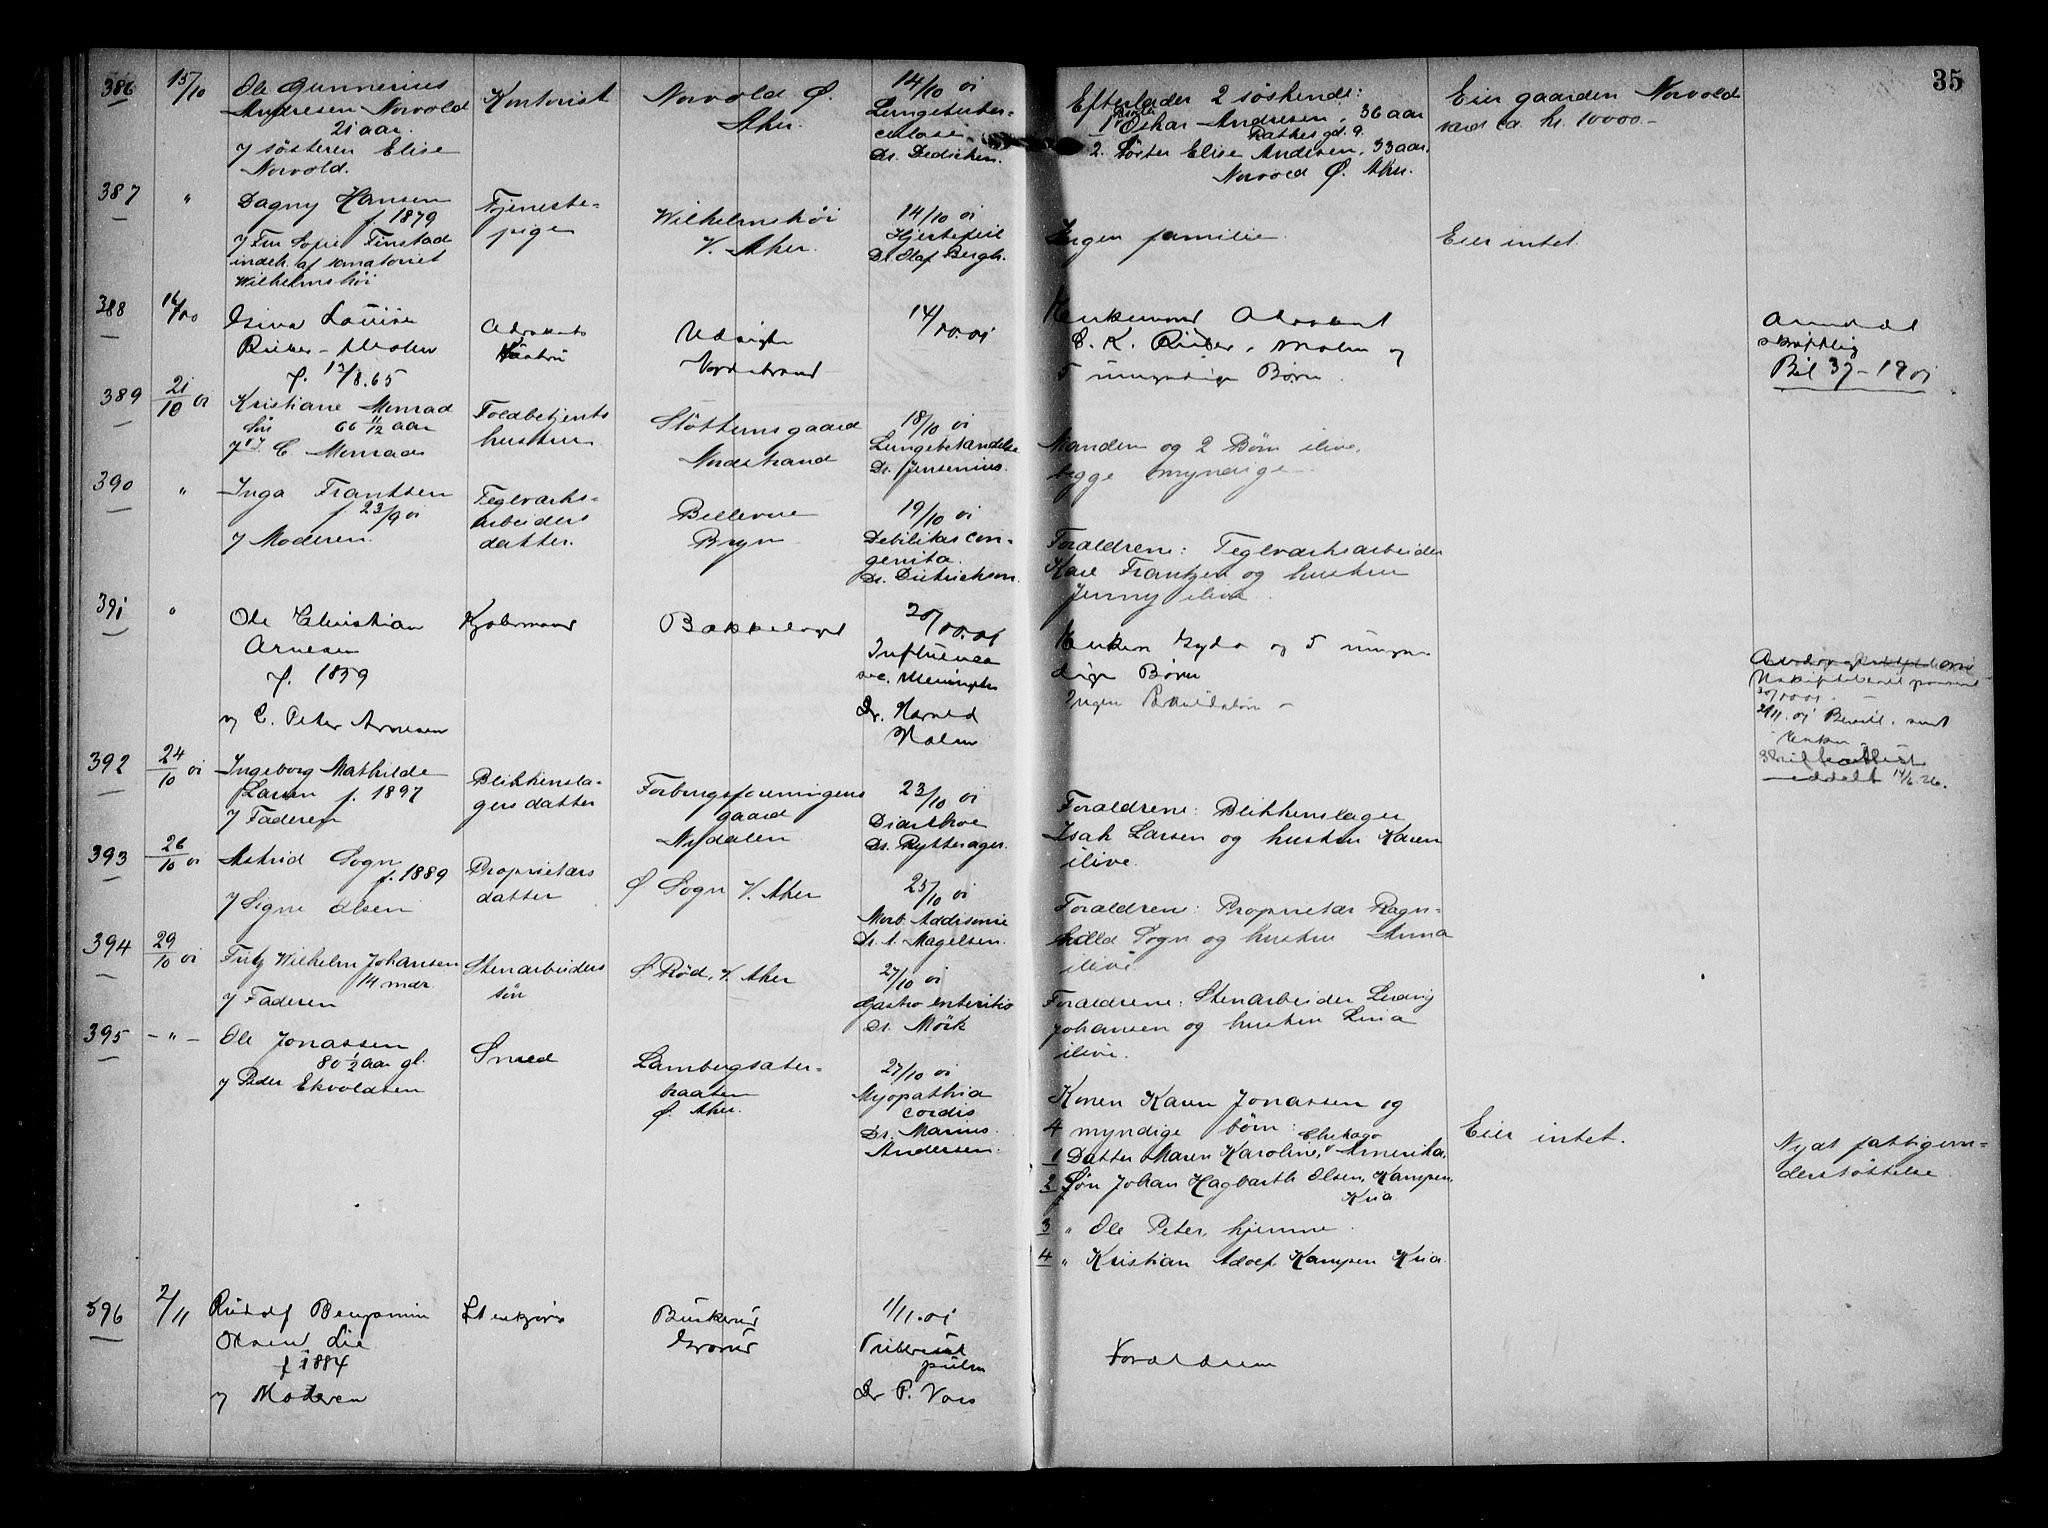 35
386
15/10
Ole Gunnerius
Andresen Norvold
21 aar.
v/ søsteren Elise
Norvold.
Kontorist
Norvold Ø.
Aker.
14/10 01
Lungetuber-
culose
Dr. Dedichen.
Efterlader 2 søskende:
1 Broder Oskar Andresen, 36 aar
Rathkesgd. 9.
2. Søster Elise Andresen, 33 aar.
Norvold Ø. Aker.
Eier gaarden Norvold
værd ca. kr. 10000.-
387
"
Dagny Hansen
f. 1879
v/ Fru Sofie Finstad
indeh. af sanatoriet
Wilhelmshøi
Tjeneste-
pige
Wilhelmshøi
V. Aker.
14/10 01
Hjertefeil
Dr. Olaf Bergh.
Ingen familie.
Eier intet.
388
16/10
Louise
f. 13/8.65
Advokats
Udsigten
Nordstrand
14/10.01
Enkemand Advokat
5 umyndige Børn.
skriftlig
Bil 37-1901
389
21/10 01
Kristiane Monrad
66 11/12 aar
v/ C. Monrad
Toldbetjents
hustru
Støttumsgaard
Nordstrand
18/10 01
Lungebetændelse
Dr. Jensenius.
Manden og 2 Børn ilive,
begge myndige.
390
"
Inga Frantsen
f. 23/9 01
v/ Moderen.
Teglværks-
arbeiders
datter.
Bellevue
Bryn
19/10 01
Debilitas con-
genita.
Dr. Dietrichson.
Forældrene: Teglværksarbeider
Karl Frantzen og hustru
Jenny ilive.
391
"
Ole Christian
Arnesen
f. 1859
v/ C. Peter Arnesen
Kjøbmand
Bækkelaget
20/10.01
Influenza
sec. Meningitis
Dr. Harald
Holm
Enken Gyda og 5 umyn-
dige Børn
Ingen Særkuldsbørn -
30/10 01
Enken
meddelt 14/6 26.
392
24/10 01
Ingeborg Mathilde
Larsen f. 1897
v/ Faderen
Blikkensla-
gers datter
Forbrugsforeningens
gaard
Nydalen
23/10 01
Diarrhoe
Dr. Rytterager.
Forældrene: Blikkenslager
Isak Larsen og hustru Karen
ilive.
393
26/10 01
Astrid Sogn
f. 1889
v/ Signe Olsen
Proprietærs
datter
Ø Sogn V. Aker
25/10 01
Morb. Addisonie
Dr. A. Magelsen.
Forældrene: Proprietær Ragn-
hild Sogn og hustru Anna
ilive.
394
29/10 01
Fritz Wilhelm Johansen
14 mdr.
v/ Faderen
Stenarbeiders
søn
S. Rød, V. Aker
27/10 01
Gastro enteritis
Dr. Mörk
Forældrene: Stenarbeider Ludvig
Johansen og hustru Lina
ilive.
395
- " -
Ole Jonassen
80 1/2 aar gl.
v/ Peder Ekvoldsen
Smed
Lambergsæter-
braaten
Ø. Aker.
27/10 01
Myopathia
cordis
Dr. Marius
Andersen.
Konen Karen Jonassen og
4 myndige børn:
1 Datter Maren Karoline, Chikago Amerika.
2 Søn Johan Hagbarth Olsen, Kampen,
Kria
3 " Ole Peter, hjemme.
4 " Kristian Adolf, Kampen Kria.
Eier intet.
Nydt fattigun-
derstøttelse
396
2/11
Rudolf Benjamin
Olsen Lie
f. 1884
v/ Moderen
Buskerud
Grorud
1/11.01
Tubercul
pulm
Dr P. Voss
Forældrene